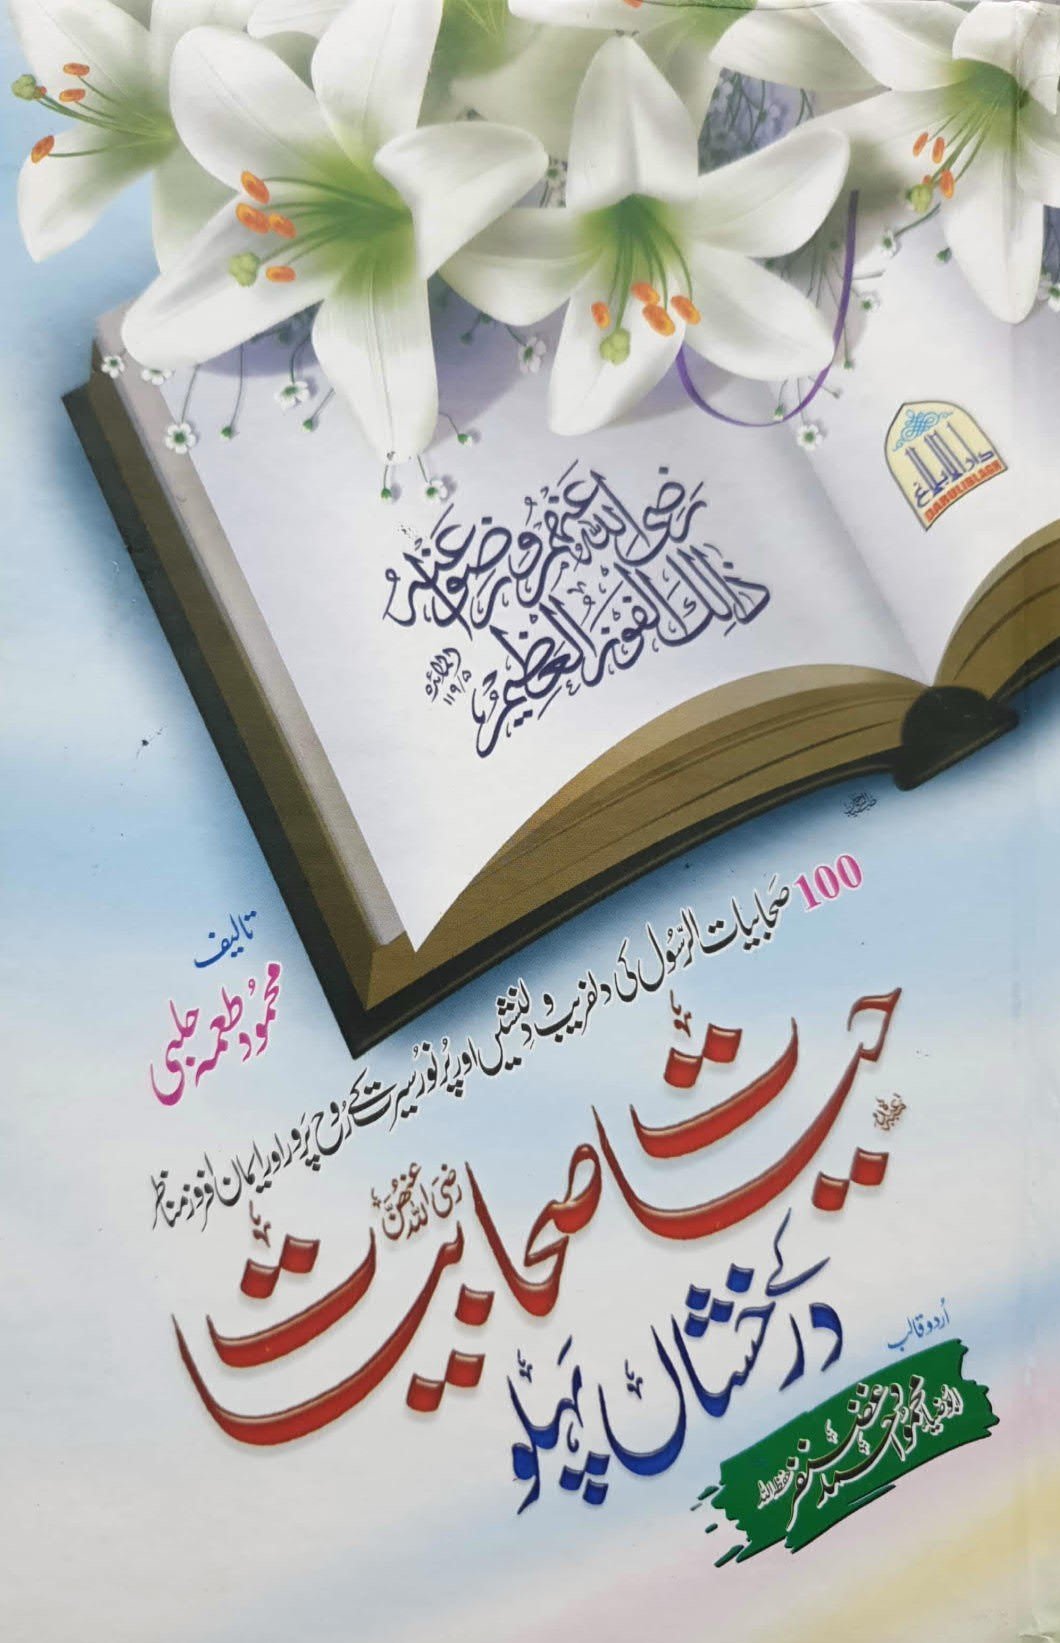 رَضِیَ اللّٰہُ عَنۡہُمۡ وَرَضُوۡا عَنۡہُ
ذٰلِکَ الۡفَوۡزُ الۡعَظِیۡمُ
المائدہ ۱۱۹/۵
دارالابلاغ
DARULIBLAGH
100 صحابیات الرسول کی دلفریب و دلنشیں اور پُر نور سیرت کے رُوح پرور اور ایمان افروز مناظر
تالیف
محمود طعمہ حلبی
حیات صحابیات رضی اللہ عنھن
کے درخشاں پہلو
اُردو قالب
ابوضیاء محمود احمد غضنفر حفظہ اللہ